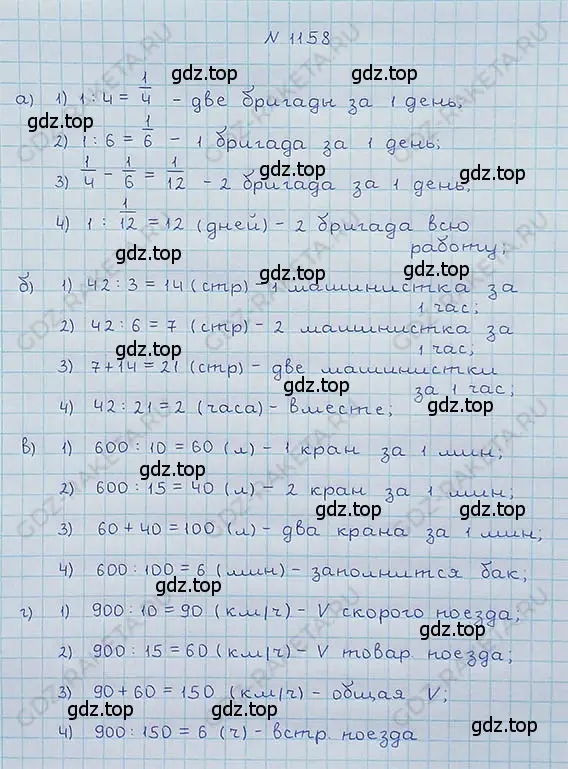 N 1158
gdz.top gdz.top
а) 1) 1 : 4 = 1/4 - две бригады за 1 день;
gdz.top gdz.top
2) 1 : 6 = 1/6 - 1 бригада за 1 день;
3) 1/4 - 1/6 = 1/12 - 2 бригада за 1 день;
gdz.top gdz.top
4) 1 : 1/12 = 12 (дней) - 2 бригада всю
работу;
gdz.top gdz.top
б) 1) 42 : 3 = 14 (стр) - 1 машинистка за
1 час;
2) 42 : 6 = 7 (стр) - 2 машинистка за
1 час;
gdz.top gdz.top
3) 7 + 14 = 21 (стр) - две машинистки
за 1 час;
gdz.top
4) 42 : 21 = 2 (часа) - вместе;
в) 1) 600 : 10 = 60 (л) - 1 кран за 1 мин;
gdz.top gdz.top
2) 600 : 15 = 40 (л) - 2 кран за 1 мин;
gdz.top
3) 60 + 40 = 100 (л) - два крана за 1 мин;
4) 600 : 100 = 6 (мин) - заполнится бак;
gdz.top
г) 1) 900 : 10 = 90 (км/ч) - V скорого поезда;
gdz.top
2) 900 : 15 = 60 (км/ч) - V товар поезда;
3) 90 + 60 = 150 (км/ч) - общая V;
gdz.top gdz.top
4) 900 : 150 = 6 (ч) - встр поезда
GDZ-RAKETA.RU